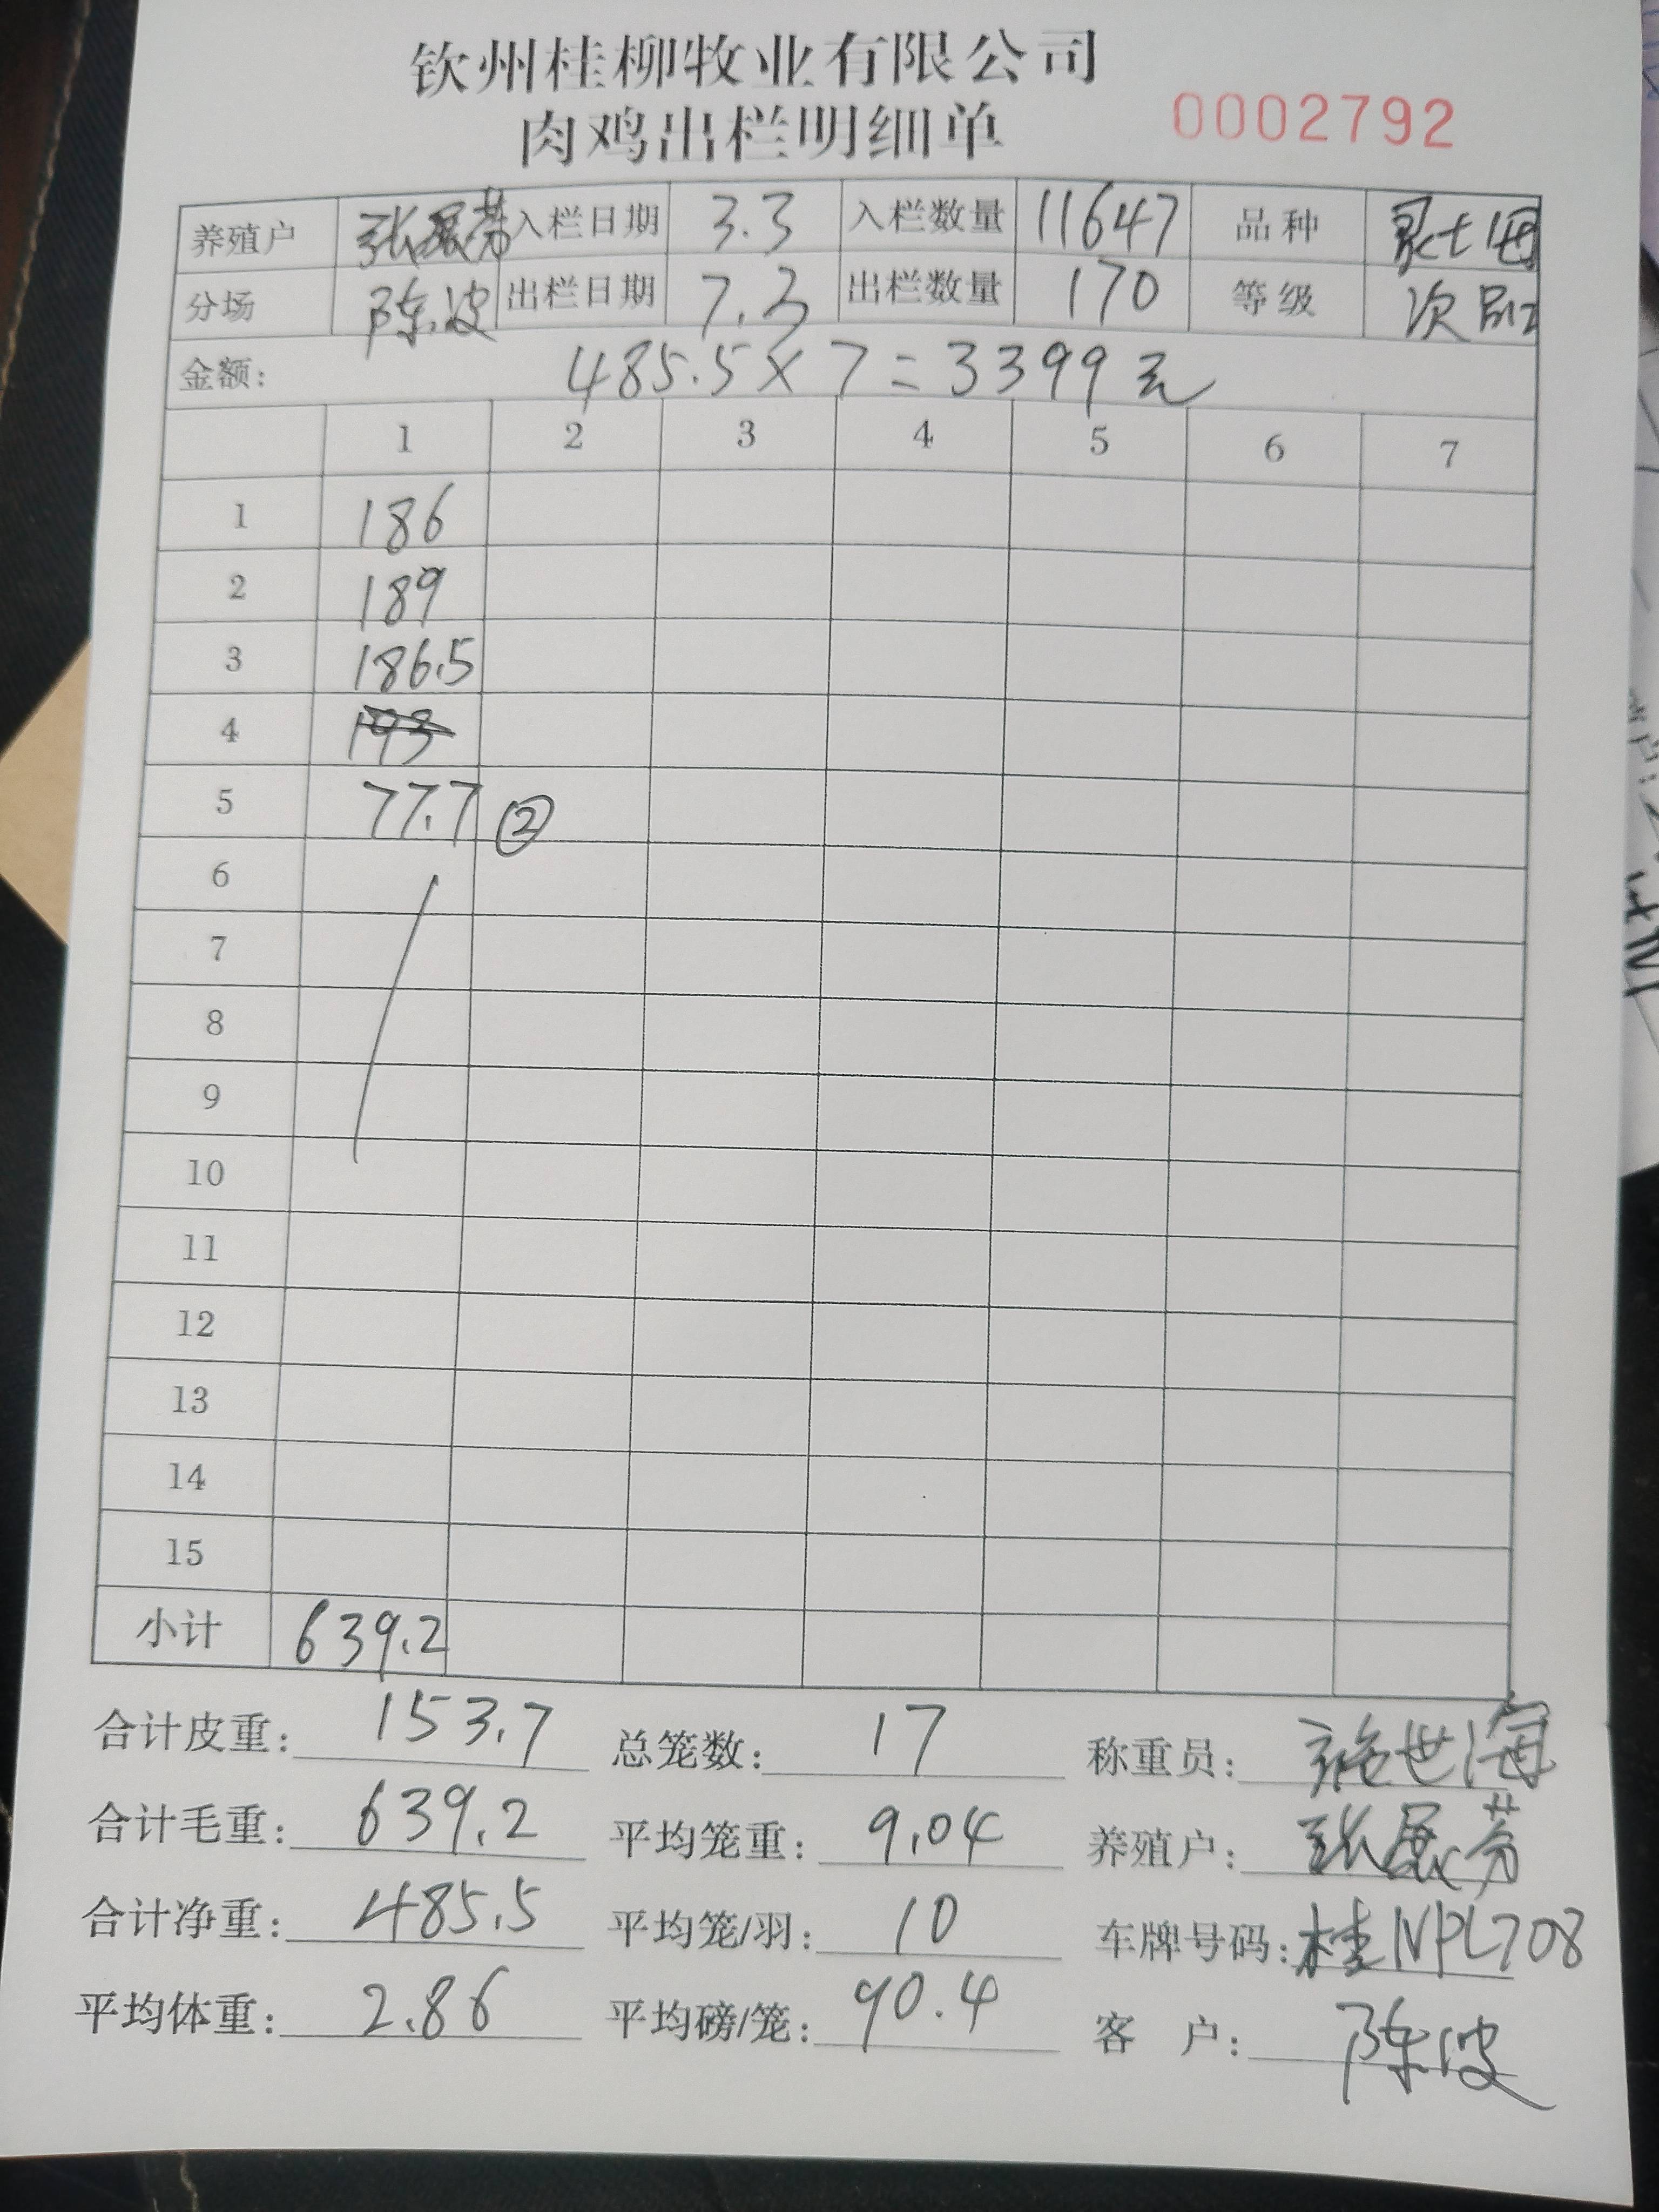 钦州桂柳牧业有限公司
肉鸡出栏明细单 0002792
养殖户 张展芬 入栏日期 3.3 入栏数量 11647 品种
分场 陈波 出栏日期 7.3 出栏数量 170 等级 次
金额: 485.5×7=3399元
1 2 3 4 5 6 7
1 186
2 189
3 186.5
4 193
5 77.7 ②
6
7
8
9
10
11
12
13
14
15
小计 639.2
合计皮重: 153.7 总笼数: 17 称重员: 施世海
合计毛重: 639.2 平均笼重: 9.04 养殖户: 张展芬
合计净重: 485.5 平均笼/羽: 10 车牌号码: 桂NPL708
平均体重: 2.86 平均磅/笼: 90.4 客 户: 陈波